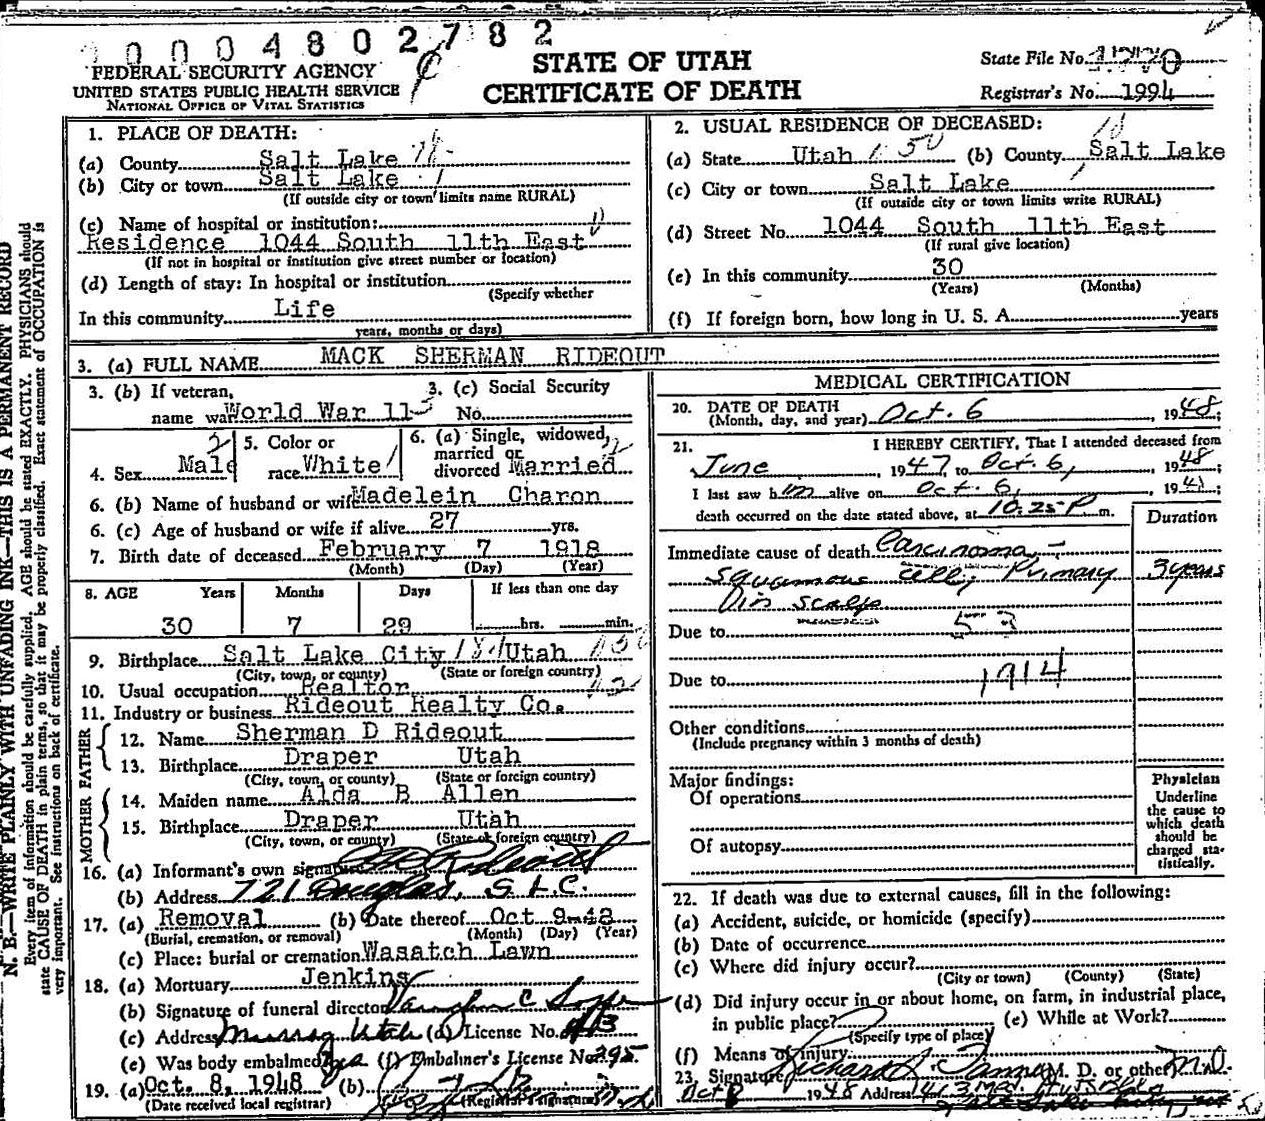 0004802782
FEDERAL SECURITY AGENCY
UNITED STATES PUBLIC HEALTH SERVICE
NATIONAL OFFICE OF VITAL STATISTICS
STATE OF UTAH
CERTIFICATE OF DEATH
State File No.
Registrar's No. 1994
N. B.—WRITE PLAINLY WITH UNFADING INK—THIS IS A PERMANENT RECORD
Every item of information should be carefully supplied. AGE should be stated EXACTLY. PHYSICIANS should
state CAUSE OF DEATH in plain terms, so that it may be properly classified. Exact statement of OCCUPATION is
very important. See instructions on back of certificate.
1. PLACE OF DEATH:
(a) County Salt Lake
(b) City or town Salt Lake
(If outside city or town limits name RURAL)
(c) Name of hospital or institution:
Residence 1044 South 11th East
(If not in hospital or institution give street number or location)
(d) Length of stay: In hospital or institution
(Specify whether
In this community Life
years, months or days)
2. USUAL RESIDENCE OF DECEASED:
(a) State Utah 50 (b) County Salt Lake
(c) City or town Salt Lake
(If outside city or town limits write RURAL)
(d) Street No. 1044 South 11th East
(If rural give location)
(e) In this community 30
(Years) (Months)
(f) If foreign born, how long in U. S. A. years
3. (a) FULL NAME MACK SHERMAN RIDEOUT
3. (b) If veteran, 3. (c) Social Security
name war World War 11 No.
4. Sex Male 5. Color or race White 6. (a) Single, widowed, married or divorced Married
6. (b) Name of husband or wife Madelein Charon
6. (c) Age of husband or wife if alive 27 yrs.
7. Birth date of deceased February 7 1918
(Month) (Day) (Year)
8. AGE Years Months Days If less than one day
30 7 29 hrs. min.
9. Birthplace Salt Lake City Utah
(City, town, or county) (State or foreign country)
10. Usual occupation Realtor
11. Industry or business Rideout Realty Co.
FATHER
12. Name Sherman D Rideout
13. Birthplace Draper Utah
(City, town, or county) (State or foreign country)
MOTHER
14. Maiden name Alda B Allen
15. Birthplace Draper Utah
(City, town, or county) (State or foreign country)
16. (a) Informant's own signature
(b) Address 721 Douglas, S.L.C.
17. (a) Removal (b) Date thereof Oct 9-48
(Burial, cremation, or removal) (Month) (Day) (Year)
(c) Place: burial or cremation Wasatch Lawn
18. (a) Mortuary Jenkins
(b) Signature of funeral director Vaughn C
(c) Address Murray Utah (d) License No. 413
(e) Was body embalmed? yes (f) Embalmer's License No. 295
19. (a) Oct. 8, 1948 (b)
(Date received local registrar) (Registrar's signature)
MEDICAL CERTIFICATION
20. DATE OF DEATH
(Month, day, and year) Oct. 6, 1948;
21. I HEREBY CERTIFY, That I attended deceased from
June, 1947 to Oct. 6, 1948;
I last saw him alive on Oct. 6, 1948;
death occurred on the date stated above, at 10:25 P m.
Duration
Immediate cause of death Carcinoma,
squamous cell, Primary 3 years
in scalp
Due to 53
Due to 1914
Other conditions
(Include pregnancy within 3 months of death)
Major findings:
Of operations
Of autopsy
Physician
Underline
the cause to
which death
should be
charged sta-
tistically.
22. If death was due to external causes, fill in the following:
(a) Accident, suicide, or homicide (specify)
(b) Date of occurrence
(c) Where did injury occur?
(City or town) (County) (State)
(d) Did injury occur in or about home, on farm, in industrial place,
in public place? (e) While at Work?
(Specify type of place)
(f) Means of injury
23. Signature Richard (M. D. or other) M.D.
Oct 8 1948 Address 413 Med. Arts Bldg
Salt Lake City, Ut